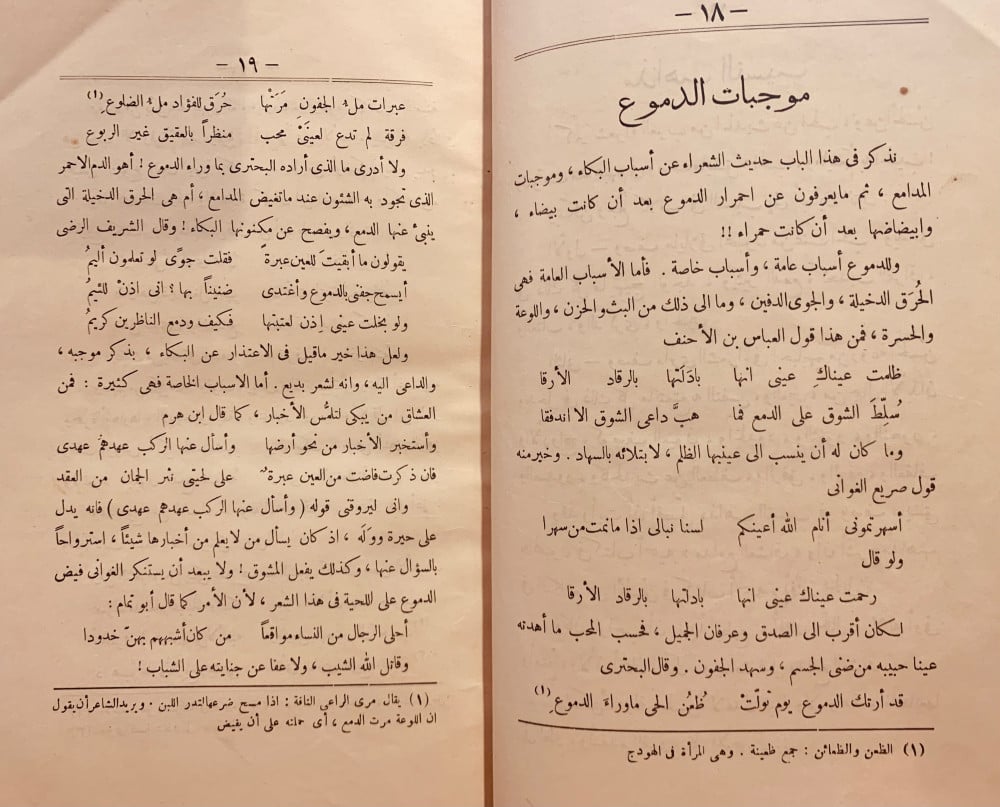 — ١٨ —
موجبات الدموع
نذكر فى هذا الباب حديث الشعراء عن أسباب البكاء ، وموجبات
المدامع ، ثم مايعرفون عن احمرار الدموع بعد أن كانت بيضاء ،
وابيضاضها بعد أن كانت حمراء !!
وللدموع أسباب عامة ، وأسباب خاصة . فأما الأسباب العامة فهى
الحُرَق الدخيلة ، والجوى الدفين ، وما الى ذلك من البث والحزن ، واللوعة
والحسرة ، فمن هذا قول العباس بن الأحنف
ظلمت عيناكِ عينى انها بادَلَتها بالرقاد الأرقا
سُلِّطَ الشوق على الدمع فما هبَّ داعى الشوق الا اندفقا
وما كان له أن ينسب الى عينيها الظلم ، لابتلائه بالسهاد . وخير منه
قول صريع الغوانى
أسهرتمونى أنام الله أعينكم لسنا نبالى اذا مانمت من سهرا
ولو قال
رحمت عيناك عينى انها بادلتها بالرقاد الأرقا
لكان أقرب الى الصدق وعرفان الجميل ، فحسب المحب ما أهدته
عينا حبيبه من ضنى الجسم ، وسهد الجفون . وقال البحترى
قد أرتك الدموع يوم تولّتْ ظُعُنُ الحى ماوراءَ الدموع (١)
(١) الظعن والظعائن : جمع ظعينة . وهى المرأة فى الهودج
— ١٩ —
عبرات ملء الجفون مَرَتْها حُرَق للفؤاد ملء الضلوع (١)
فرقة لم تدع لعينَىْ محب منظراً بالعقيق غير الربوع
ولا أدرى ما الذى أراده البحترى بما وراء الدموع ! أهو الدم الاحمر
الذى تجود به الشئون عند ماتفيض المدامع ، أم هى الحرق الدخيلة التى
ينبئ عنها الدمع ، ويفصح عن مكنونها البكاء ! وقال الشريف الرضى
يقولون ما أبقيتَ للعين عبرةً فقلت جوًى لو تعلمون أليمُ
أيسمح جفنى بالدموع وأغتدى ضنيناً بها ؟ انى اذنْ للئيمُ
ولو بخلت عينى إذن لعتبتها فكيف ودمع الناظرين كريمُ
ولعل هذا خير ماقيل فى الاعتذار عن البكاء ، بذكر موجبه ،
والداعى اليه ، وانه لشعر بديع . أما الاسباب الخاصة فهى كثيرة : فمن
العشاق من يبكى لتلمُّس الأخبار ، كما قال ابن هرم
وأستخبر الأخبار من نحو أرضها وأسأل عنها الركب عهدهمُ عهدى
فان ذكرت فاضت من العين عبرة على لحيتى نثر الجمان من العقد
وانى ليروقنى قوله ( وأسأل عنها الركب عهدهم عهدى ) فانه يدل
على حيرة ووَلَه ، اذ كان يسأل من لايعلم من أخبارها شيئاً ، استرواحاً
بالسؤال عنها ، وكذلك يفعل المشوق ! ولا يبعد أن يستنكر الغوانى فيض
الدموع على اللحية فى هذا الشعر ، لأن الأمر كما قال أبو تمام :
أحلى الرجال من النساء مواقعاً من كان أشبههم بهنّ خدودا
وقاتل الله الشيب ، ولا عفا عن جنايته على الشباب !
(١) يقال مرى الراعى الناقة : اذا مسح ضرعها لتدر اللبن . ويريد الشاعر أن يقول
ان اللوعة مرت الدمع ، أى حملته على أن يفيض